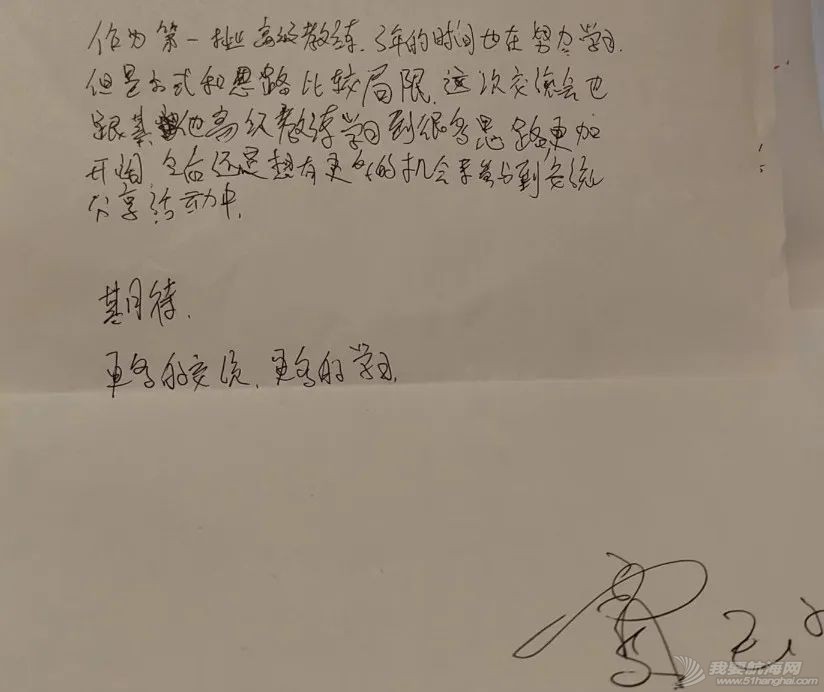 作为第一批高级教练.3年的时间也在努力学习.
但是方式和思路比较局限.这次交流会也
跟其他高级教练学习到很多思路更加
开阔.今后还是想有更多的机会来参与到交流
分享活动中.
期待.
更多的交流.更多的学习.
我要航海网
www.51hanghai.com